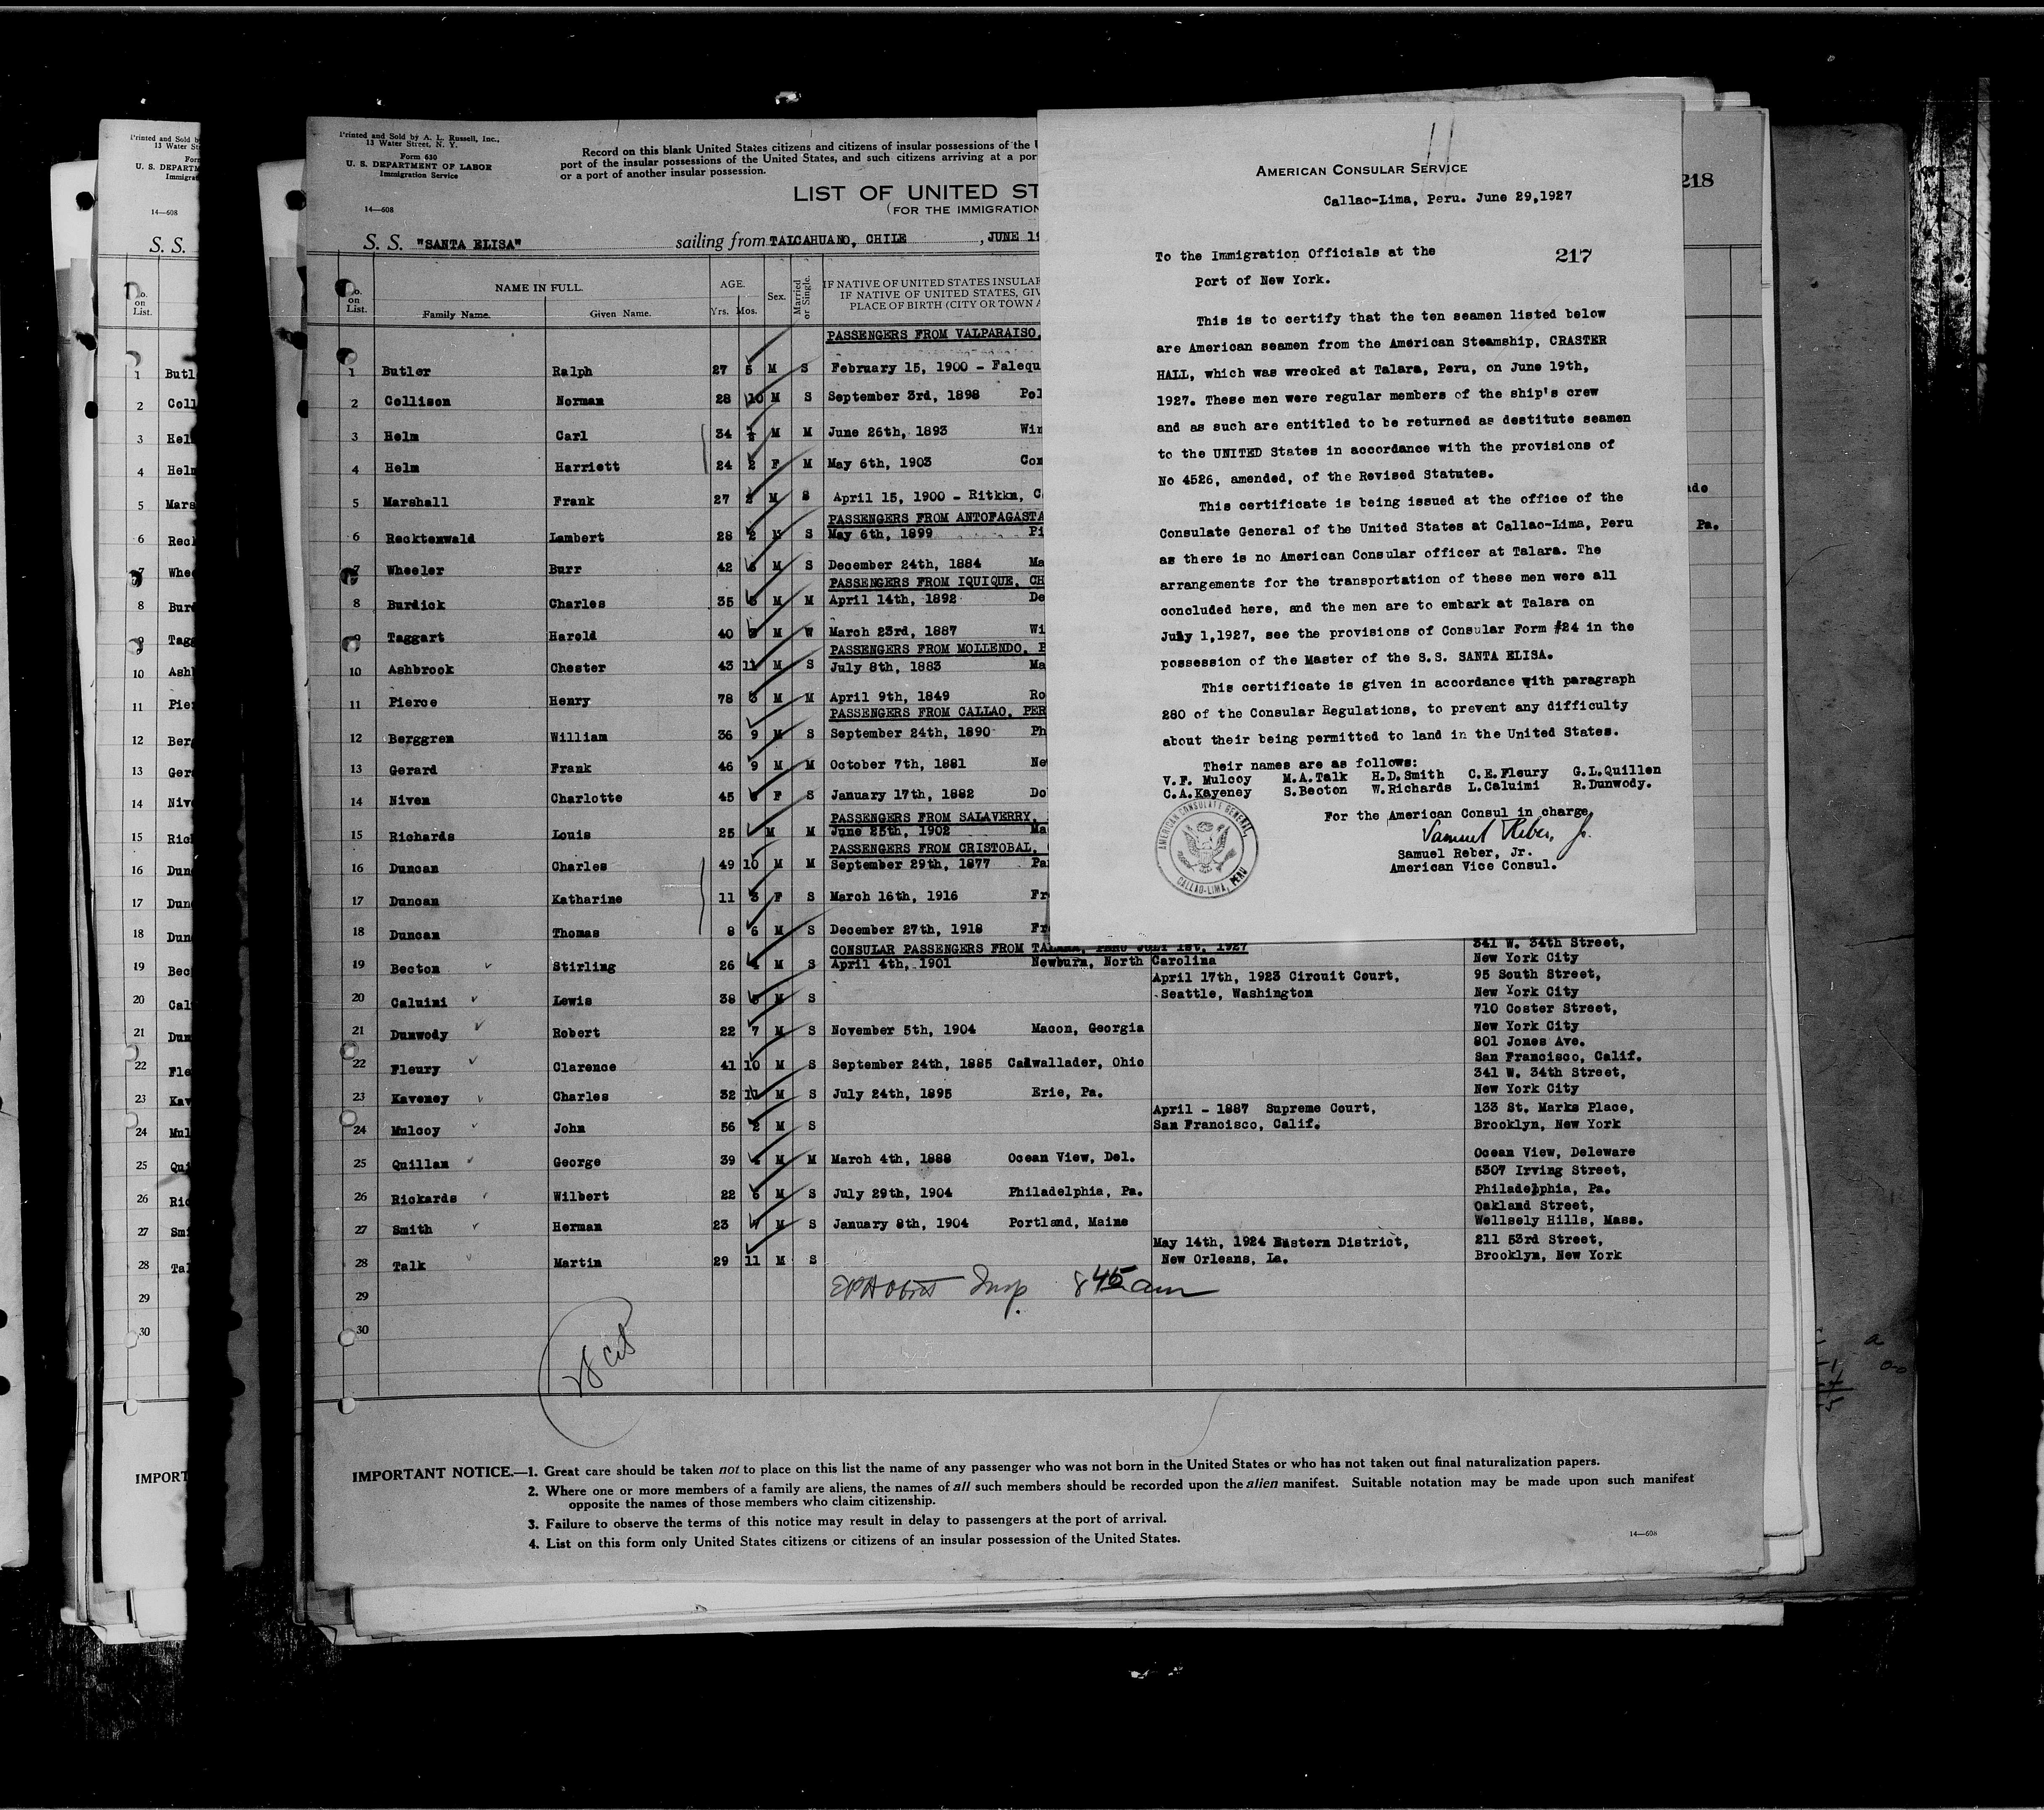 Printed and Sold by
13 Water St
Form
U. S. DEPARTM
Immigra
14—608
S. S.
No.
on
List.
1 Butl
2 Coll
3 Hel
4 Helm
5 Mars
6 Rec
7 Whee
8 Burd
9 Tagg
10 Ash
11 Pier
12 Berg
13 Gera
14 Nive
15 Rich
16 Dun
17 Dun
18 Dun
19 Bec
20 Cal
21 Dun
22 Fle
23 Kav
24 Mul
25 Qui
26 Ric
27 Smi
28 Tal
29
30
IMPORT
Printed and Sold by A. L. Russell, Inc.,
13 Water Street, N. Y.
Form 630
U. S. DEPARTMENT OF LABOR
Immigration Service
14—608
Record on this blank United States citizens and citizens of insular possessions of the U
port of the insular possessions of the United States, and such citizens arriving at a por
or a port of another insular possession.
LIST OF UNITED ST
(FOR THE IMMIGRATION
S. S. "SANTA ELISA" sailing from TALCAHUANO, CHILE , JUNE 1
No. on List. NAME IN FULL. AGE. Sex. Married or Single. IF NATIVE OF UNITED STATES INSULAR
IF NATIVE OF UNITED STATES, GIV
Family Name. Given Name. Yrs. Mos. PLACE OF BIRTH (CITY OR TOWN A
PASSENGERS FROM VALPARAISO,
1 Butler Ralph 27 5 M S February 15, 1900 - Falequ
2 Collison Norman 28 10 M S September 3rd, 1898 Pol
3 Helm Carl 34 M M June 26th, 1893 Win
4 Helm Harriett 24 2 F M May 6th, 1903 Con
5 Marshall Frank 27 2 M S April 15, 1900 - Ritkkm, C
PASSENGERS FROM ANTOFAGASTA
6 Recktenwald Lambert 28 2 M S May 6th, 1899 Pi
7 Wheeler Burr 42 6 M S December 24th, 1884 Ma
PASSENGERS FROM IQUIQUE, CH
8 Burdick Charles 35 3 M M April 14th, 1892 De
9 Taggart Harold 40 3 M W March 23rd, 1887 Wi
PASSENGERS FROM MOLLENDO, P
10 Ashbrook Chester 43 11 M S July 8th, 1883 Ma
11 Pierce Henry 78 3 M M April 9th, 1849 Ro
PASSENGERS FROM CALLAO, PER
12 Berggren William 36 9 M S September 24th, 1890 Ph
13 Gerard Frank 46 9 M M October 7th, 1881 Ne
14 Niven Charlotte 45 6 F S January 17th, 1882 Do
PASSENGERS FROM SALAVERRY,
15 Richards Louis 25 M M June 25th, 1902 Ma
PASSENGERS FROM CRISTOBAL,
16 Duncan Charles 49 10 M M September 29th, 1877 Pa
17 Duncan Katharine 11 3 F S March 16th, 1916 Fr
18 Duncan Thomas 8 6 M S December 27th, 1918 Fr
CONSULAR PASSENGERS FROM TALARA, PERU JULY 1st, 1927
341 W. 34th Street,
19 Becton Stirling 26 4 M S April 4th, 1901 Newburn, North Carolina New York City
April 17th, 1923 Circuit Court, 95 South Street,
20 Caluimi Lewis 38 5 M S Seattle, Washington New York City
710 Coster Street,
21 Dunwody Robert 22 7 M S November 5th, 1904 Macon, Georgia New York City
801 Jones Ave.
22 Fleury Clarence 41 10 M S September 24th, 1885 Cadwallader, Ohio San Francisco, Calif.
341 W. 34th Street,
23 Kaveney Charles 32 11 M S July 24th, 1895 Erie, Pa. New York City
April - 1887 Supreme Court, 133 St. Marks Place,
24 Mulcoy John 56 2 M S San Francisco, Calif. Brooklyn, New York
25 Quillan George 39 4 M M March 4th, 1888 Ocean View, Del. Ocean View, Deleware
5307 Irving Street,
26 Rickards Wilbert 22 6 M S July 29th, 1904 Philadelphia, Pa. Philadelphia, Pa.
Oakland Street,
27 Smith Herman 23 7 M S January 8th, 1904 Portland, Maine Wellsely Hills, Mass.
May 14th, 1924 Eastern District, 211 53rd Street,
28 Talk Martin 29 11 M S New Orleans, La. Brooklyn, New York
29
Insp. 8 45 am
30
IMPORTANT NOTICE.—1. Great care should be taken not to place on this list the name of any passenger who was not born in the United States or who has not taken out final naturalization papers.
2. Where one or more members of a family are aliens, the names of all such members should be recorded upon the alien manifest. Suitable notation may be made upon such manifest
opposite the names of those members who claim citizenship.
3. Failure to observe the terms of this notice may result in delay to passengers at the port of arrival.
4. List on this form only United States citizens or citizens of an insular possession of the United States.
14—608
218
ade
Pa.
AMERICAN CONSULAR SERVICE
Callao-Lima, Peru. June 29,1927
To the Immigration Officials at the
217
Port of New York.
This is to certify that the ten seamen listed below
are American seamen from the American Steamship, CRASTER
HALL, which was wrecked at Talara, Peru, on June 19th,
1927. These men were regular members of the ship's crew
and as such are entitled to be returned as destitute seamen
to the UNITED States in accordance with the provisions of
No 4526, amended, of the Revised Statutes.
This certificate is being issued at the office of the
Consulate General of the United States at Callao-Lima, Peru
as there is no American Consular officer at Talara. The
arrangements for the transportation of these men were all
concluded here, and the men are to embark at Talara on
July 1,1927, see the provisions of Consular Form #24 in the
possession of the Master of the S.S. SANTA ELISA.
This certificate is given in accordance with paragraph
280 of the Consular Regulations, to prevent any difficulty
about their being permitted to land in the United States.
Their names are as follows:
V.F. Mulcoy M.A.Talk H.D.Smith C.E.Fleury G.L.Quillen
C.A.Kayeney S.Becton W.Richards L.Caluimi R.Dunwody.
For the American Consul in charge,
Samuel Reber, Jr.
Samuel Reber, Jr.
American Vice Consul.
AMERICAN CONSULATE GENERAL,
CALLAO-LIMA, PERU